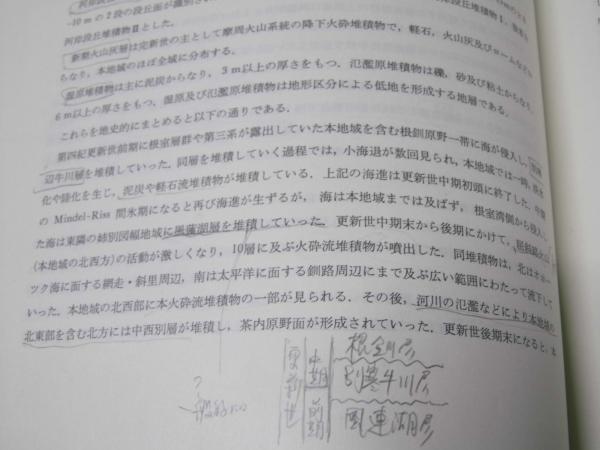 -10 m の2段の段丘面が識別され
河岸段丘堆積物Ⅱとした.
新期火山灰層は完新世の主として摩周火山系統の降下火砕堆積物で，軽石，火山灰及びロームなどか
らなり，本地域のほぼ全域に分布する.
湿原堆積物は主に泥炭からなり，3 m以上の厚さをもつ. 氾濫原堆積物は礫，砂及び粘土からなり，
6 m以上の厚さをもつ，湿原及び氾濫原堆積物は地形区分による低地を形成する地層である.
これらを地史的にまとめると以下の通りである.
第四紀更新世前期に根室層群や第三系が露出していた本地域を含む根釧原野一帯に海が侵入し，
辺牛川層を堆積していった. 同層を堆積していく過程では，小海退が数回見られ，本地域では一時，
化や陸化を生じ，泥炭や軽石流堆積物が堆積している. 上記の海進は更新世中期初頭に終了した. 中期
の Mindel-Riss 間氷期になると再び海進が生ずるが，海は本地域までは及ばず，根室湾側から侵入し
た海は東隣の姉別図幅地域に風蓮湖層を堆積していった. 更新世中期末から後期にかけて，
(本地域の北西方) の活動が激しくなり，10層に及ぶ火砕流堆積物が噴出した. 同堆積物は，北はオホー
ツク海に面する網走・斜里周辺，南は太平洋に面する釧路周辺にまで及ぶ広い範囲にわたって流下して
いった. 本地域の北西部に本火砕流堆積物の一部が見られる. その後，河川の氾濫などにより本地域の
北東部を含む北方には中西別層が堆積し，茶内原野面が形成されていった. 更新世後期末になると，本
更新世 中期 前期
根釧層
別寒牛川層
風連湖層
?